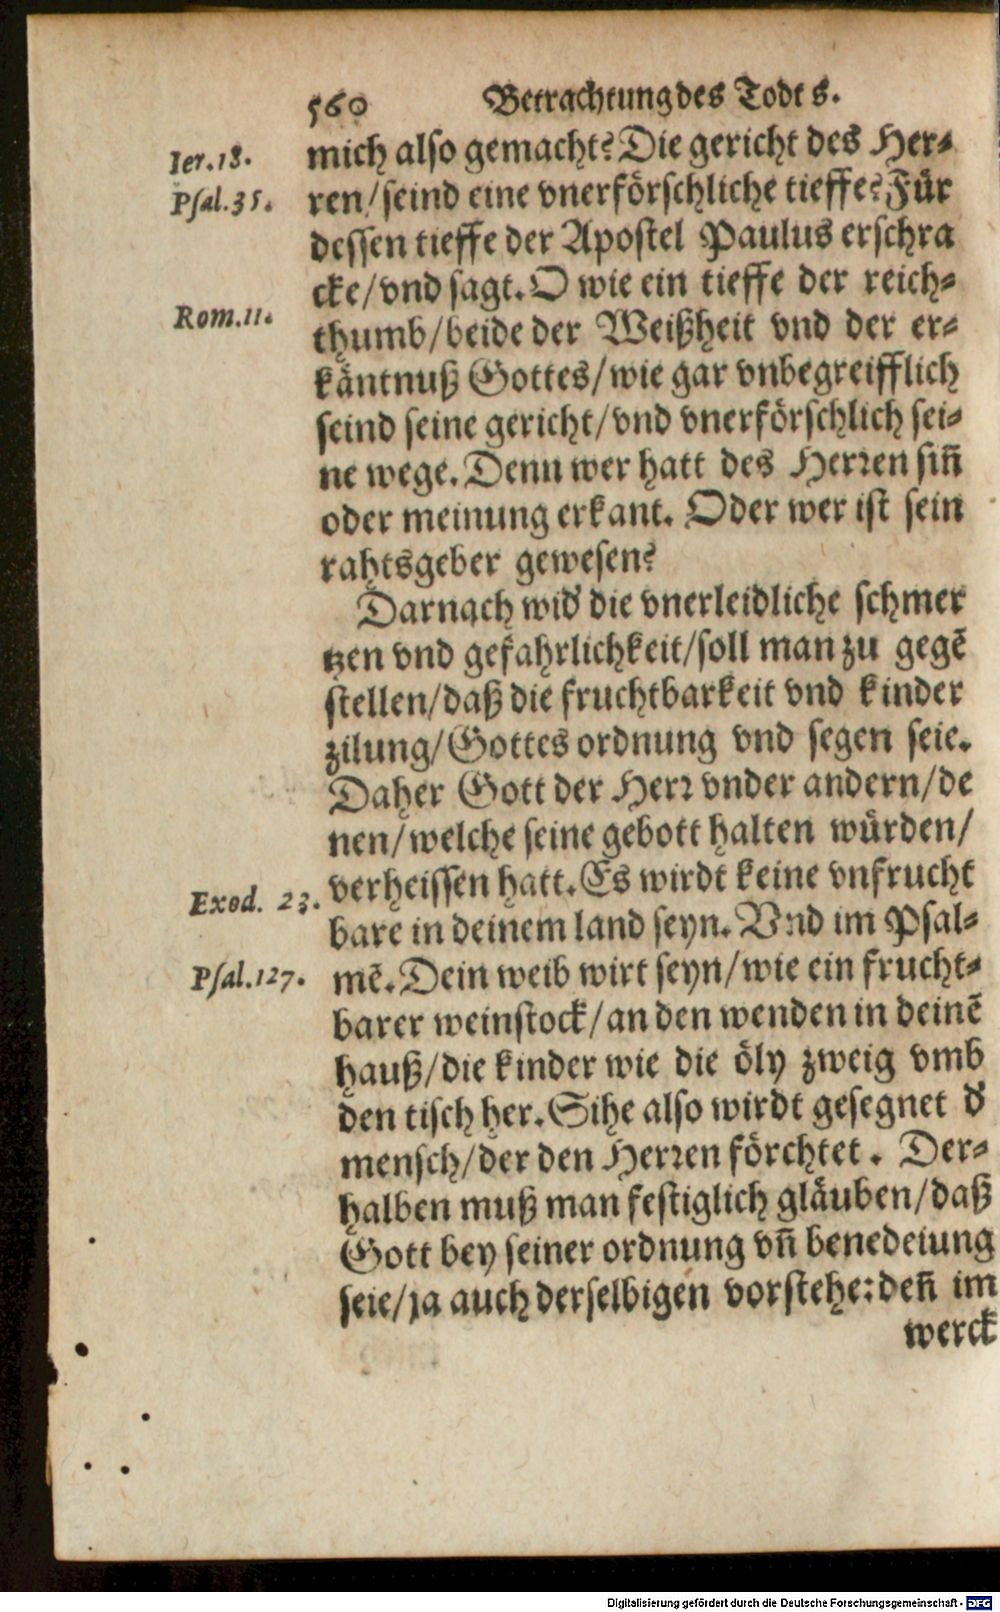 560 Betrachtung des Todts.
Ier.18.
mich also gemacht? Die gericht des Her-
Psal.35.
ren/seind eine vnerförschliche tieffe? Für
dessen tieffe der Apostel Paulus erschra
cke/vnd sagt. O wie ein tieffe der reich-
Rom.11.
thumb/beide der Weißheit vnd der er-
käntnuß Gottes/wie gar vnbegreifflich
seind seine gericht/vnd vnerförschlich sei-
ne wege. Denn wer hatt des Herren siñ
oder meinung erkant. Oder wer ist sein
rahtsgeber gewesen?
Darnach wid' die vnerleidliche schmer
tzen vnd gefahrlichkeit/soll man zu gegẽ
stellen/daß die fruchtbarkeit vnd kinder
zilung/Gottes ordnung vnd segen seie.
Daher Gott der Herr vnder andern/de
nen/welche seine gebott halten würden/
Exod. 23.
verheissen hatt. Es wirdt keine vnfrucht
bare in deinem land seyn. Vnd im Psal-
Psal.127.
mẽ. Dein weib wirt seyn/wie ein frucht-
barer weinstock/an den wenden in deinẽ
hauß/die kinder wie die öly zweig vmb
den tisch her. Sihe also wirdt gesegnet d'
mensch/der den Herren förchtet. Der-
halben muß man festiglich gläuben/daß
Gott bey seiner ordnung vñ benedeiung
seie/ja auch derselbigen vorstehe: deñ im
werck
Digitalisierung gefördert durch die Deutsche Forschungsgemeinschaft - DFG